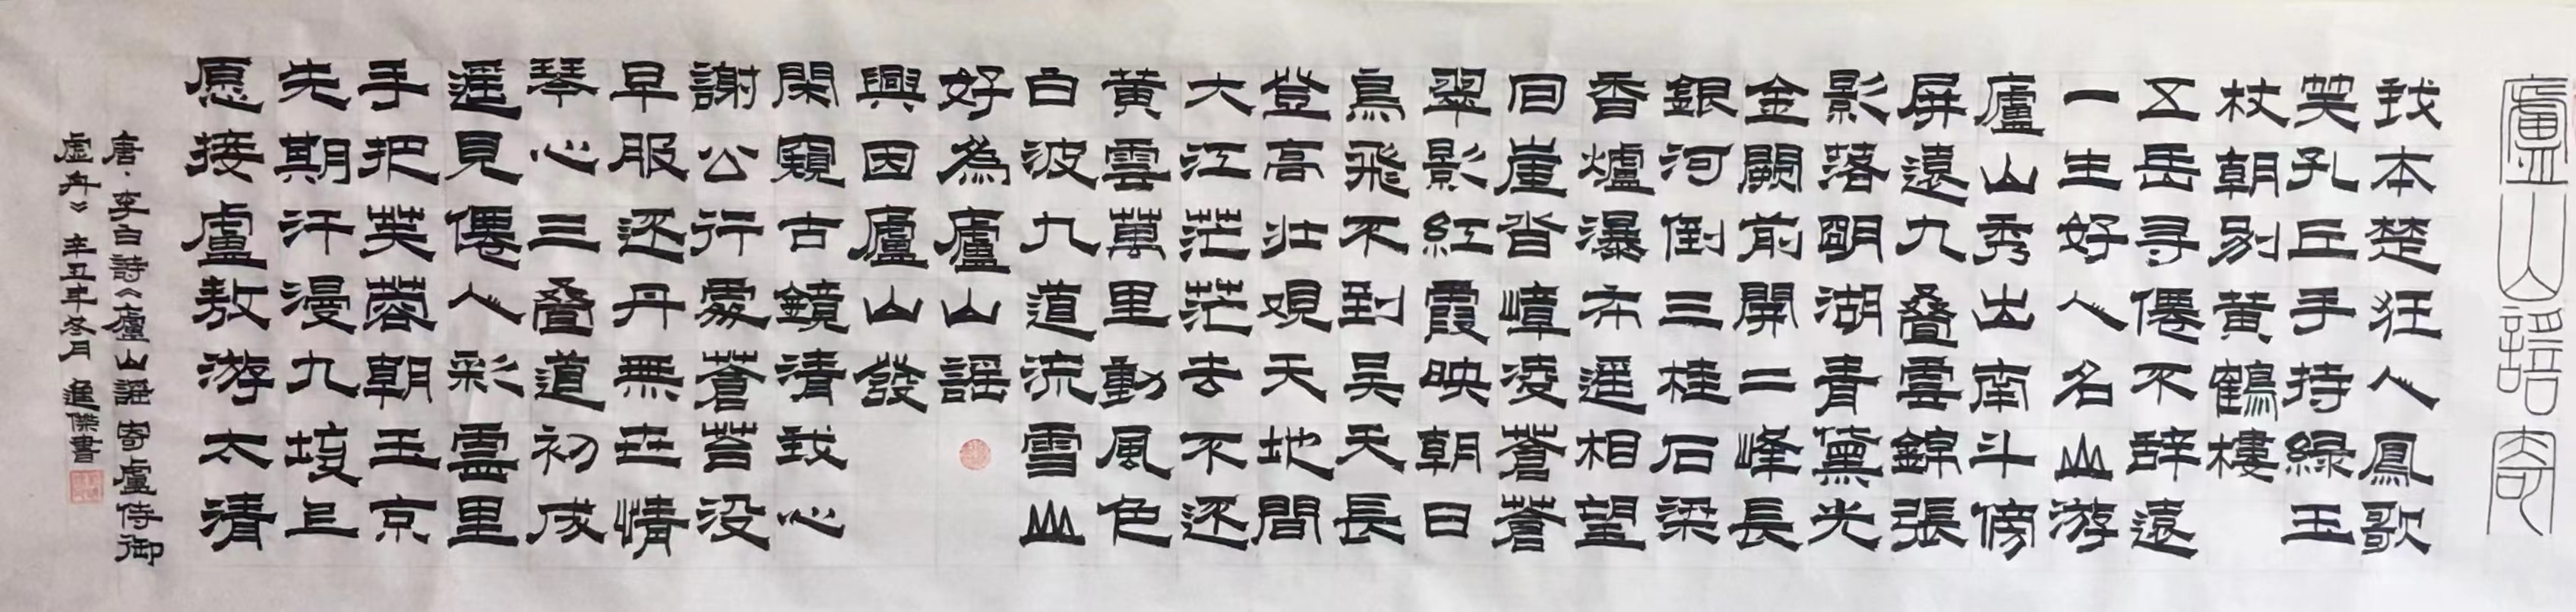 廬山謠寄
我本楚狂人鳳歌
笑孔丘手持緑玉
杖朝别黄鶴樓
五岳寻僊不辞遠
一生好人名山游
廬山秀出南斗傍
屏遠九叠雲錦張
影落明湖青黛光
金闕前開二峰長
銀河倒三桂石梁
香爐瀑布遥相望
回崖沓嶂凌蒼蒼
翠影紅霞映朝日
鳥飛不到吴天長
登高壮观天地間
大江茫茫去不还
黄雲萬里動風色
白波九道流雪山
好為廬山謡
興因廬山發
閑窺古鏡清我心
謝公行處蒼苔没
早服还丹無世情
琴心三叠道初成
遥見僊人彩雲里
手把芙蓉朝玉京
先期汗漫九垓上
愿接盧敖游太清
唐·李白詩《廬山謡寄盧侍御
虚舟》 辛丑年冬月 進傑書